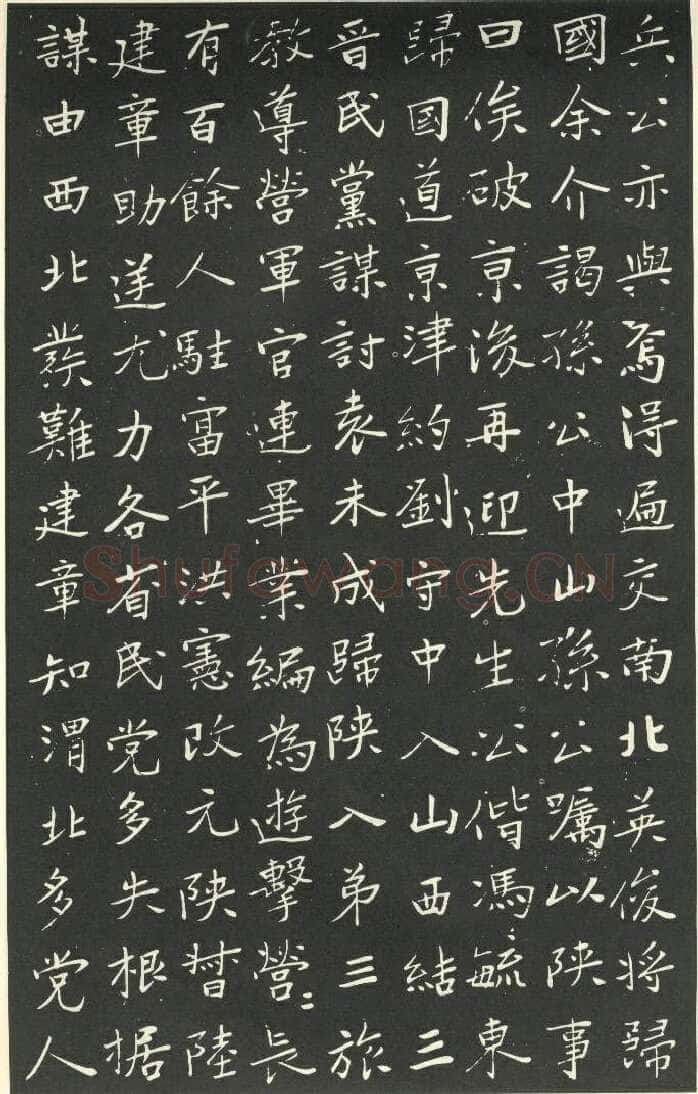 兵公亦與焉得遍交南北英俊將歸
國余介謁孫公中山孫公囑以陝事
曰俟破京後再迎先生公偕馮毓東
歸國道京津約劉守中入山西結三
晋民黨謀討袁未成歸陝入弟三旅
教導營軍官連畢業編為遊擊營〻長
有百餘人駐富平洪憲改元陝督陸
建章助逆尤力各省民党多失根据
謀由西北發難建章知渭北多党人
Shufawang.CN